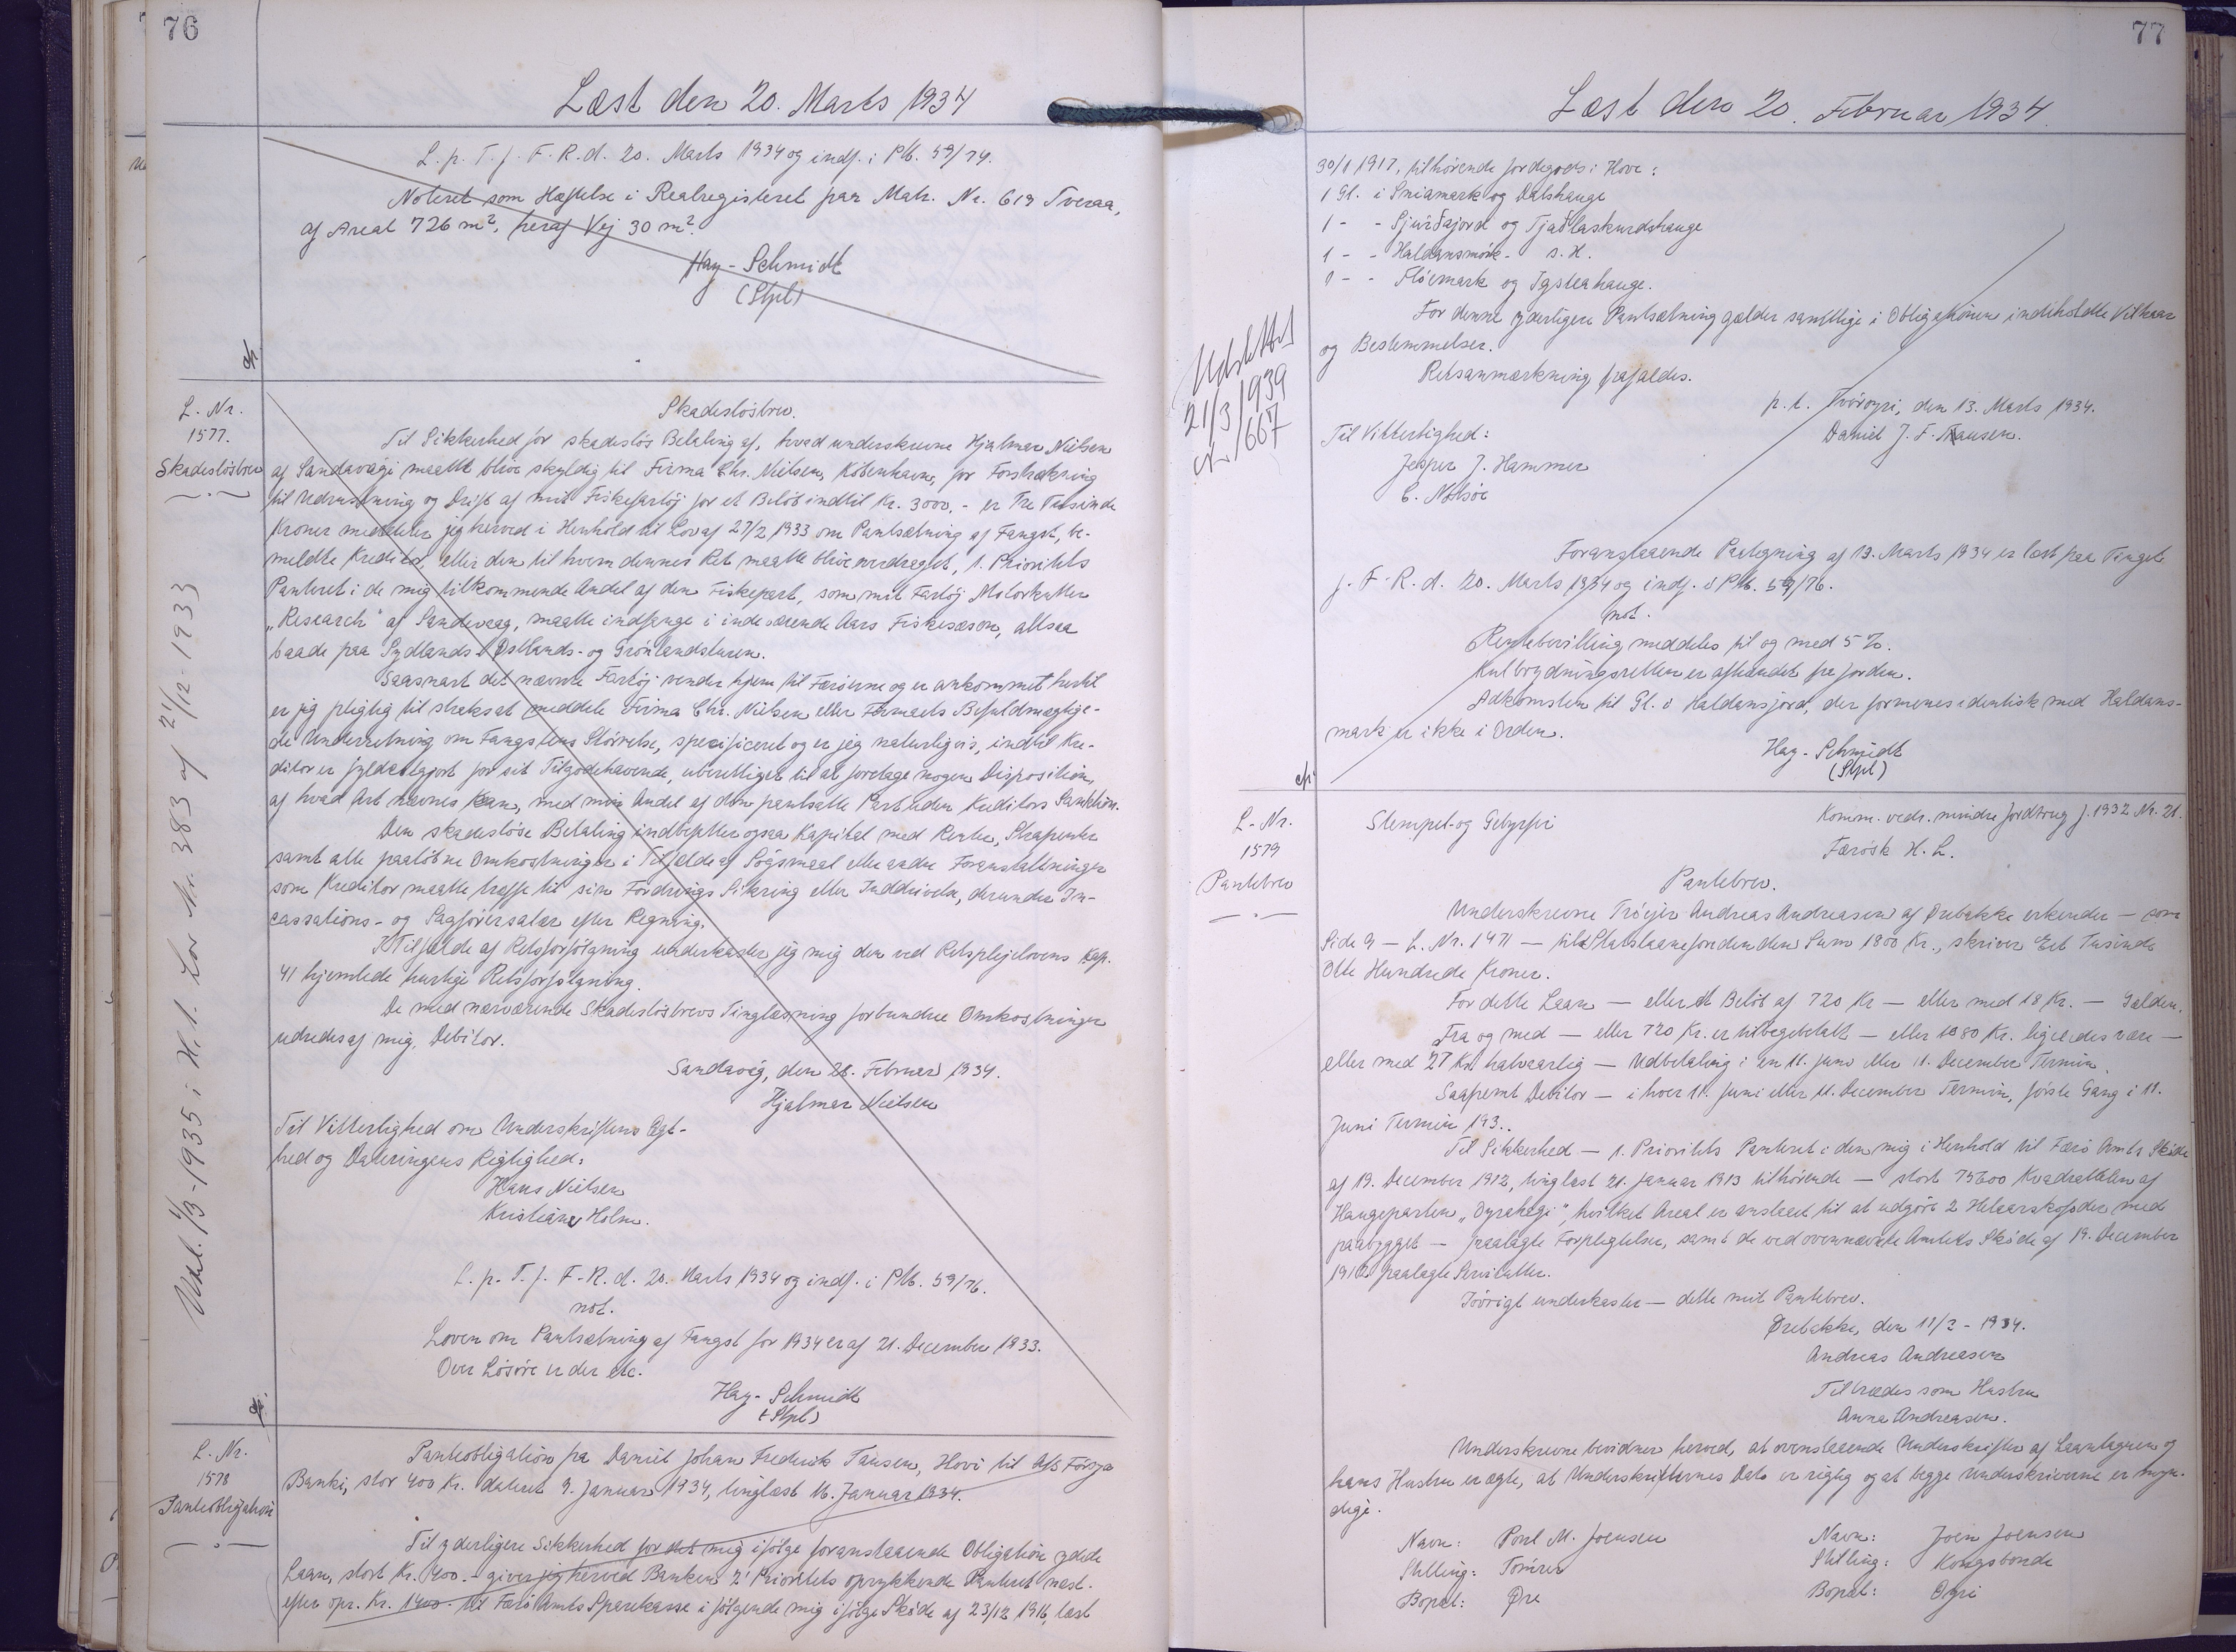 76
Læst den 20. Marts 1934
L. p. T. f. F. R. d. 20. Marts 1934 og indf. i Ptb. 59/74.
Noteret som Hæftelse i Realregisteret paa Matr. Nr. 619 Tveraa,
af Areal 726 m², heraf Vej 30 m².
Hay-Schmidt
(Stpl)
L. Nr.
1577.
Skadesløsbrev
Skadesløsbrev.
Til Sikkerhed for skadesløs Betaling af, hvad underskrevne Hjalmar Nielsen
af Sandavági maatte blive skyldig til Firma Chr. Nielsen, København, for Forstrækning
til Udrustning og Drift af mit Fiskefartøj for et Beløb indtil Kr. 3000,- er Tre Tusinde
Kroner meddeler jeg herved i Henhold til Lov af 27/2 1933 om Pantsætning af Fangst, be-
meldte Kreditor, eller den til hvem dennes Ret maatte blive overdraget, 1. Prioritets
Panteret i de mig tilkommende Andel af den Fiskepart, som mit Fartøj Motorkutter
„Research" af Sandevaag, maatte indfange i indeværende Aars Fiskesæson, altsaa
baade paa Sydlands- Østlands- og Grønlandsturen.
Saasnart det nævnte Fartøj vender hjem til Færøerne og er ankommet hertil
er jeg pligtig til straks at meddele Firma Chr. Nielsen eller Firmaets Befuldmægtige-
de Underretning om Fangstens Størrelse, specificeret og er jeg naturligvis, indtil Kre-
ditor er fyldestgjort for sit Tilgodehavende, uberettiget til at foretage nogen Disposition,
af hvad Art nævnes kan, med min Andel af den pantsatte Part uden Kreditors Sanktion.
Den skadesløse Betaling indbefatter ogsaa Kapital med Renter, Strafrenter
samt alle paaløbne Omkostninger i Tilfælde af Søgsmaal eller andre Foranstaltninger
som Kreditor maatte træffe til sin Fordrings Sikring eller Inddrivelse, derunder In-
cassations- og Sagførersalær efter Regning.
I Tilfælde af Retsforfølgning underkaster jeg mig den ved Retsplejelovens Kap.
41 hjemlede hurtige Retsforfølgning.
De med nærværende Skadesløsbrevs Tinglæsning forbundne Omkostninger
udredes af mig, Debitor.
Sandavág, den 28. Februar 1934.
Hjalmar Nielsen
Til Vitterlighed om Underskriftens Ægt-
hed og Dateringens Rigtighed:
Hans Nielsen
Kristiane Holm.
L. p. T. f. F. R. d. 20. Marts 1934 og indf. i Ptb. 59/76.
not.
Loven om Pantsætning af Fangst for 1934 er af 21. December 1933.
Over Løsøre er der etc.
Hay-Schmidt
(Stpl)
Udsl. 1/3-1935 i H. t. Lov Nr. 383 af 21/12-1933
L. Nr.
1578
Panteobligation
Panteobligation fra Daniel Johan Frederik Hansen, Hovi til A/S Føroya
Banki, stor 400 Kr. dateret 9. Januar 1934, tinglæst 16. Januar 1934.
Til yderligere Sikkerhed for det mig ifølge foranstaaende Obligation ydede
Laan, stort Kr. 400.- giver jeg herved Banken 2' Prioritets oprykkende Panteret næst-
efter opr. Kr. 1400 til Færø Amts Sparekasse i følgende mig ifølge Skøde af 23/12 1916, læst
77
Læst den 20. Februar 1934.
30/1 1917, tilhørende Jordegods i Hove:
1 Gl. i Smiamark og Dalshauge
1 - - Sjúrðajord og Tjaðlaskurdshauge
1 - - Haldansmørk - s. H.
1 - - Fløemark og Igsteahauge.
For denne yderligere Pantsætning gælder samtlige i Obligationen indeholdte Vilkaar
og Bestemmelser.
Retsanmærkning frafaldes.
p. t. Tvöroyri, den 13. Marts 1934.
Daniel J. F. Hansen.
Til Vitterlighed:
Jesper J. Hammer
C. Nolsøe
Udslettet
21/3 1939
Nr. 1667
Foranstaaende Paategning af 13. Marts 1934 er læst paa Tinget
f. F. R. d. 20. Marts 1934 og indf. i Ptb. 59/76.
not.
Rentebevilling meddeles til og med 5 %.
Kulbrydningsretten er afhændet fra Jorden.
Adkomsten til Gl. i Haldansjord, der formenes identisk med Haldans-
mark er ikke i Orden.
Hay-Schmidt
(Stpl)
L. Nr.
1579
Pantebrev
Stempel- og Gebyrfri
Komm. vedr. mindre Jordbrug f. 1932 Nr. 21.
Færøsk H. L.
Pantebrev.
Underskrevne Trøejer Andreas Andreasen af Ørebakke erkender — som
Side 9 — L. Nr. 1471 — til Statslaanefonden den Sum 1800 Kr., skriver Eet Tusinde
Otte Hundrede Kroner.
For dette Laan — eller et Beløb af 720 Kr — eller med 18 Kr. — Gælden.
Fra og med — eller 720 Kr. er tilbagebetalt — eller 1080 Kr. ligeledes være —
eller med 27 Kr. halvaarlig — Udbetaling i en 11. Juni eller 11. December Termin.
Saafremt Debitor — i hver 11. Juni eller 11. December Termin, første Gang i 11.
Juni Termin 193..
Til Sikkerhed — 1. Prioritets Panteret i den mig i Henhold til Færø Amts Skøde
af 19. December 1912, tinglæst 21. Januar 1913 tilhørende — stort 75600 Kvadratalen af
Haugeparten „Dyrahegi", hvilket Areal er anslaaet til at udgøre 2 Helaarskofoder med
paabygget — paalagte Forpligtelser, samt de ved ovennævnte Amtets Skøde af 19. December
1912 paalagte Servitutter.
Iøvrigt underkaster — dette mit Pantebrev.
Ørebakke, den 11/2 - 1934.
Andreas Andreasen
Tiltrædes som Hustru
Anna Andreasen.
Underskrevne bevidner herved, at ovenstaaende Underskrifter af Laantageren og
hans Hustru er ægte, at Underskrifternes Dato er rigtig og at begge Underskriverne er myn-
dige.
Navn: Poul M. Joensen
Stilling: Tømrer
Bopæl: Øre
Navn: Joen Joensen
Stilling: Kongsbonde
Bopæl: Oyri